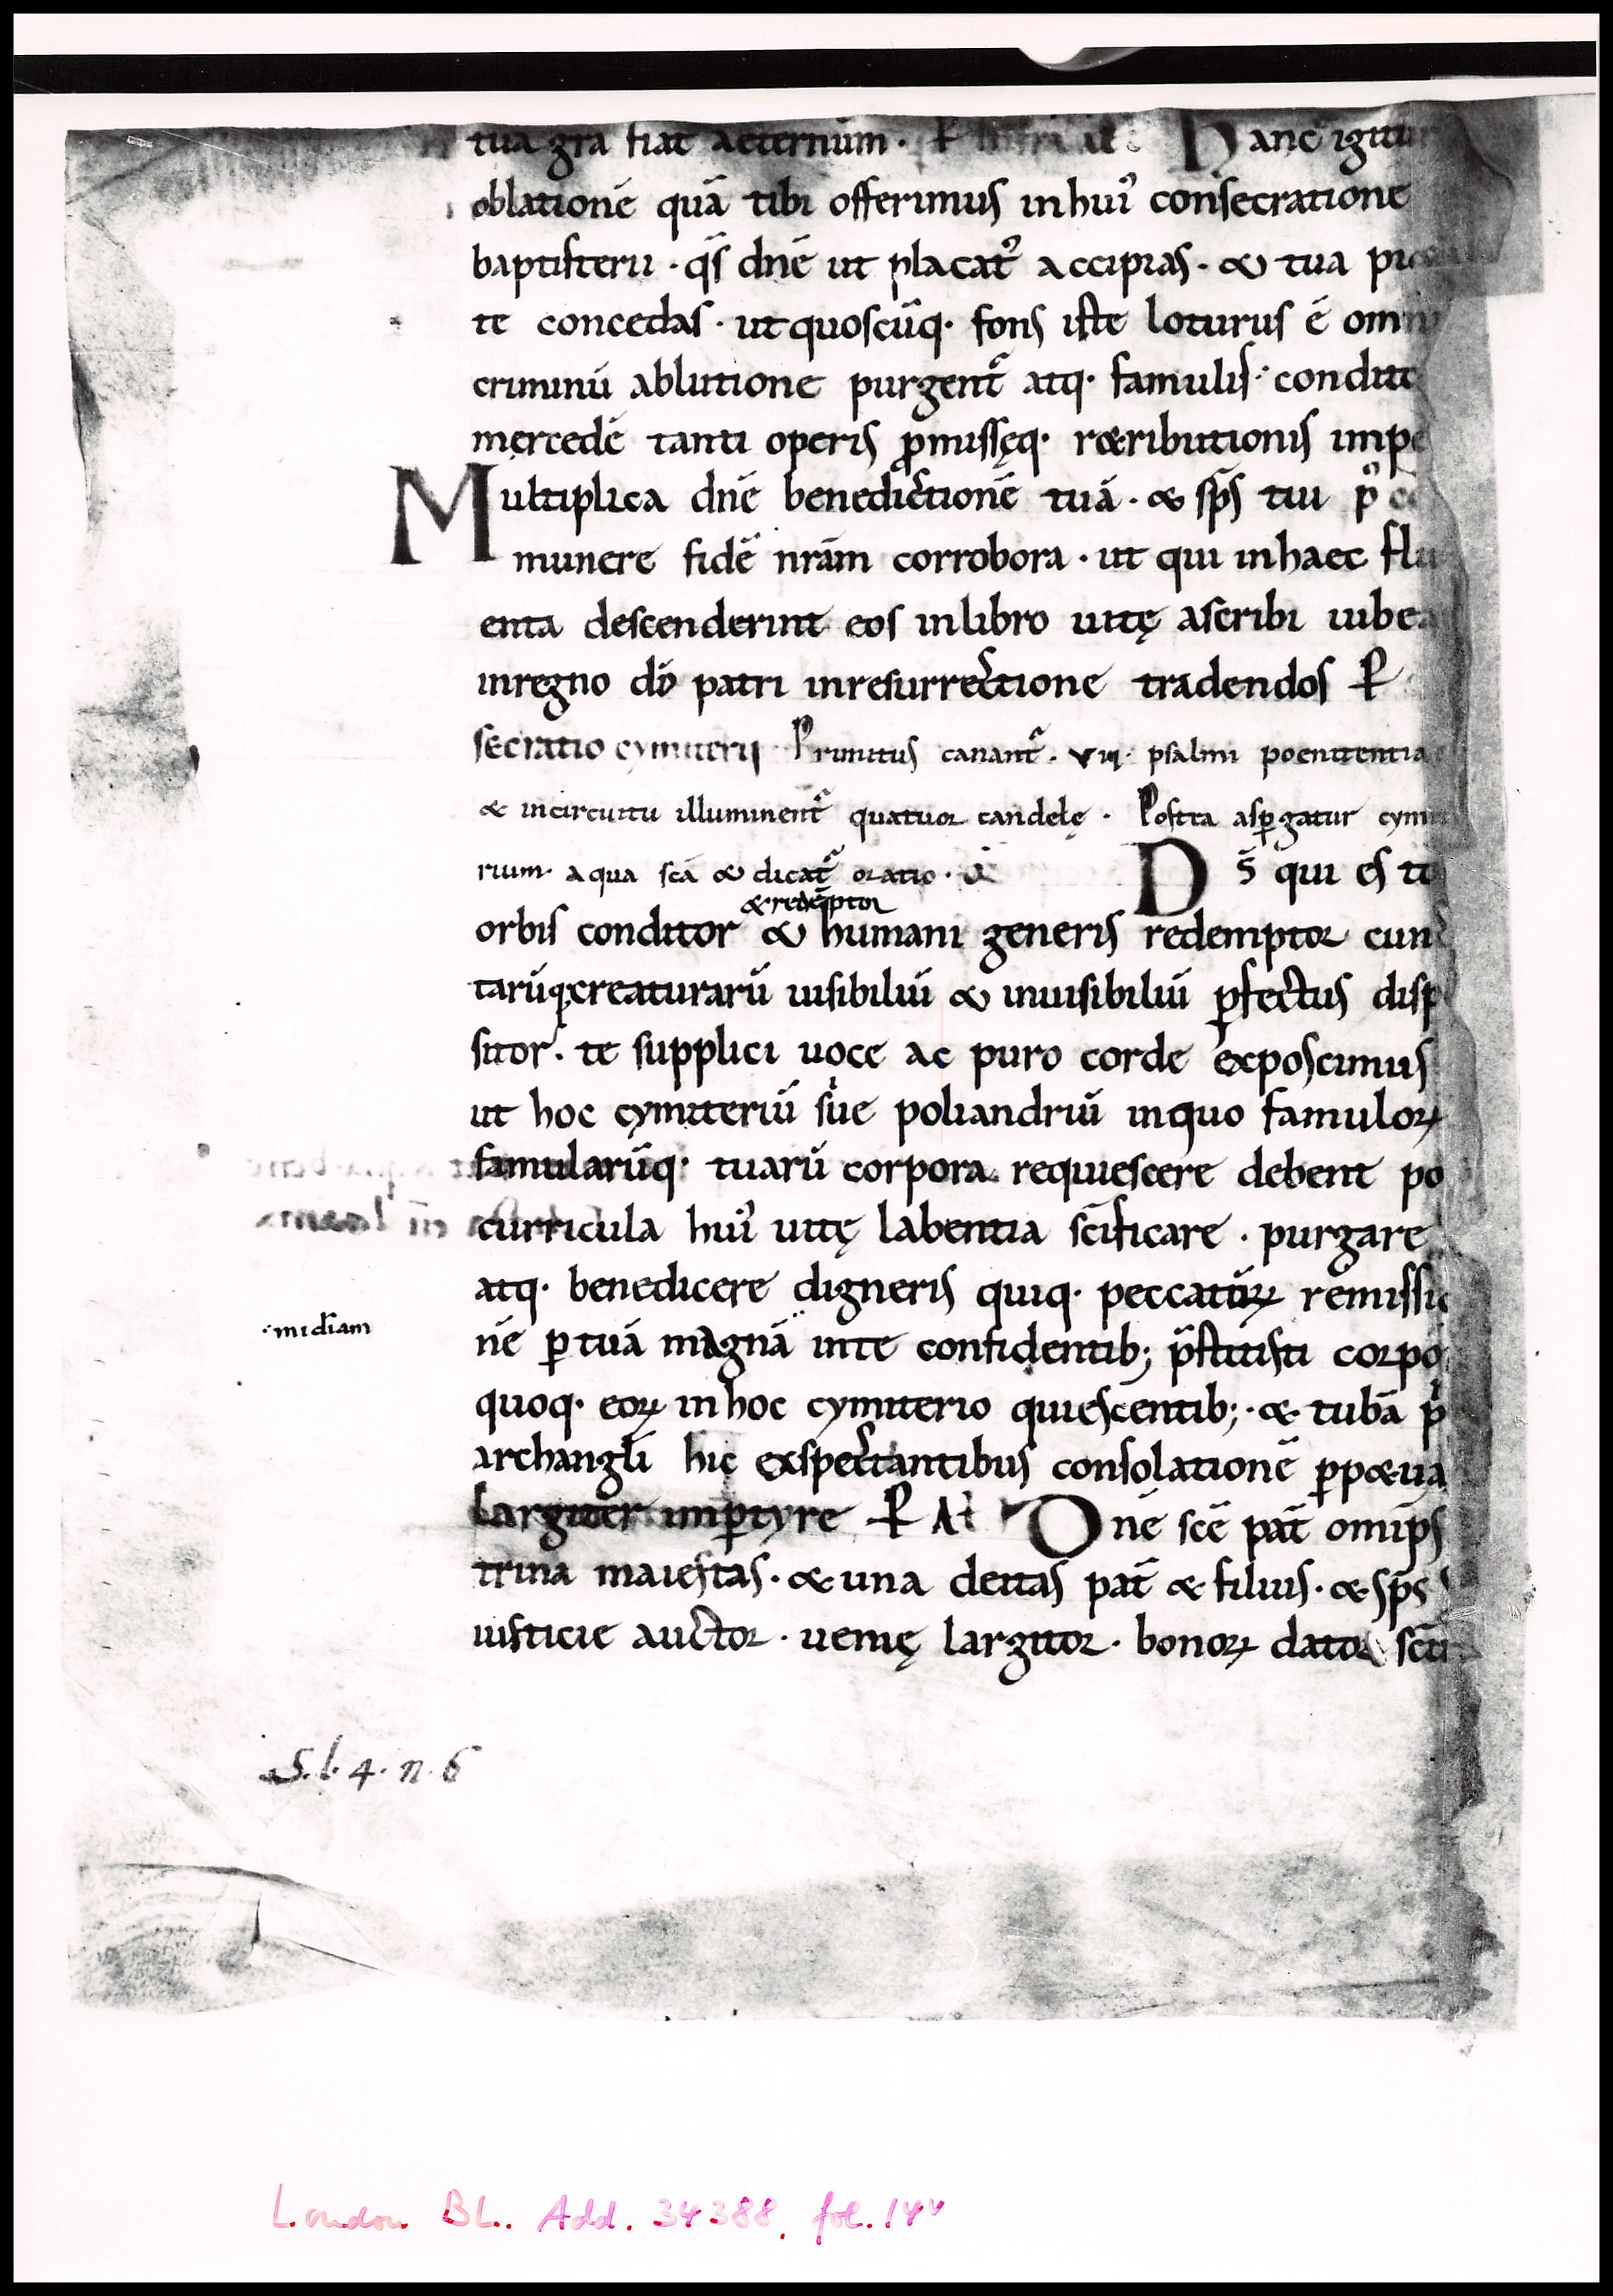 tua gra fiat aeternum · P Hanc igitur
oblationē quā tibi offerimus in hui᾽ consecratione
baptisterii · qs̄ dnē ut placat᾽ accipias · & tua pie
te concedas · ut quoscūq· fons iste loturus ē omni
criminū ablutione purgent᾽ atq· famulis · condit
mercedē tanti operis ꝓmissęq· r&ributionis impe
Multiplica dnē benedictionē tuā · & sp̄s tui p
munere fidē nrām corrobora · ut qui in haec flu
enta descenderint eos in libro uitę ascribi iube
in regno dō patri in resurrectione tradendos P
secratio cymiterii Primitus canant᾽ · vii · psalmi poenitentia
& in circuitu illuminent᾽ quatuor candelę · Postea asꝑgatur cymi
rium · aqua scā & dicat᾽ oratio ·
D s̄ qui es to
& redēptor
orbis conditor & humani generis redemptor cunc
tarūq; creaturarū uisibiliū & inuisibiliū ꝑfectus disp
sitor · te supplici uoce ac puro corde exposcimus
ut hoc cymiteriū siue poliandriū in quo famuloꝝ
famularūq· tuarū corpora requiescere debent po
curricula hui᾽ uitę labentia scīficare · purgare
atq· benedicere digneris quiq· peccatūꝝ remissio
·· midīam
nē ꝑ tuā magnā in te confidentib; p̄stitisti corpo
quoq· eoꝝ in hoc cymiterio quiescentib; · & tubā p
archangl̄i hic exspectantibus consolationē ꝑp&ua
largiter imꝑtyre P Al Dn̄e scē pat̄ omīps
trina maiestas · & una deitas pat̄ & filius · & sp̄s
iusticie auctor · uenię largitor · bonoꝝ dator scīt
S. l. 4. n. 6
London BL. Add. 34388, fol. 14v